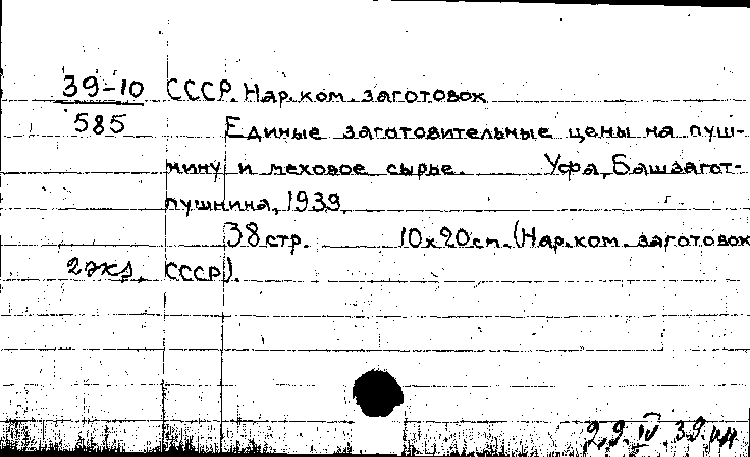 39-10 СССР. Нар. ком. заготовок
585 Единые заготовительные цены на пуш-
нину и меховое сырье. Уфа, Башзагот-
пушнина, 1939.
38 стр. 10х20 см. (Нар. ком. заготовок
2 экз. СССР).
29.IV.39.